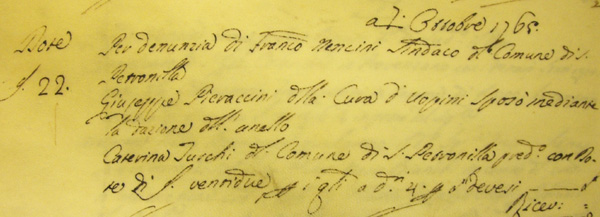 a dì Ottobre 1765:
Dote Per denunzia di Franco Nencini Sindaco dl Comune di S.
Petronilla
f. 22. Giuseppe Pieraccini della Cura d'Uopini sposò mediante
la dazione dell'anello
Caterina Turchi dl Comune di S. Petronilla pred.o con Do=
te di f. ventidue a d. 4. devesi
Ricev.: